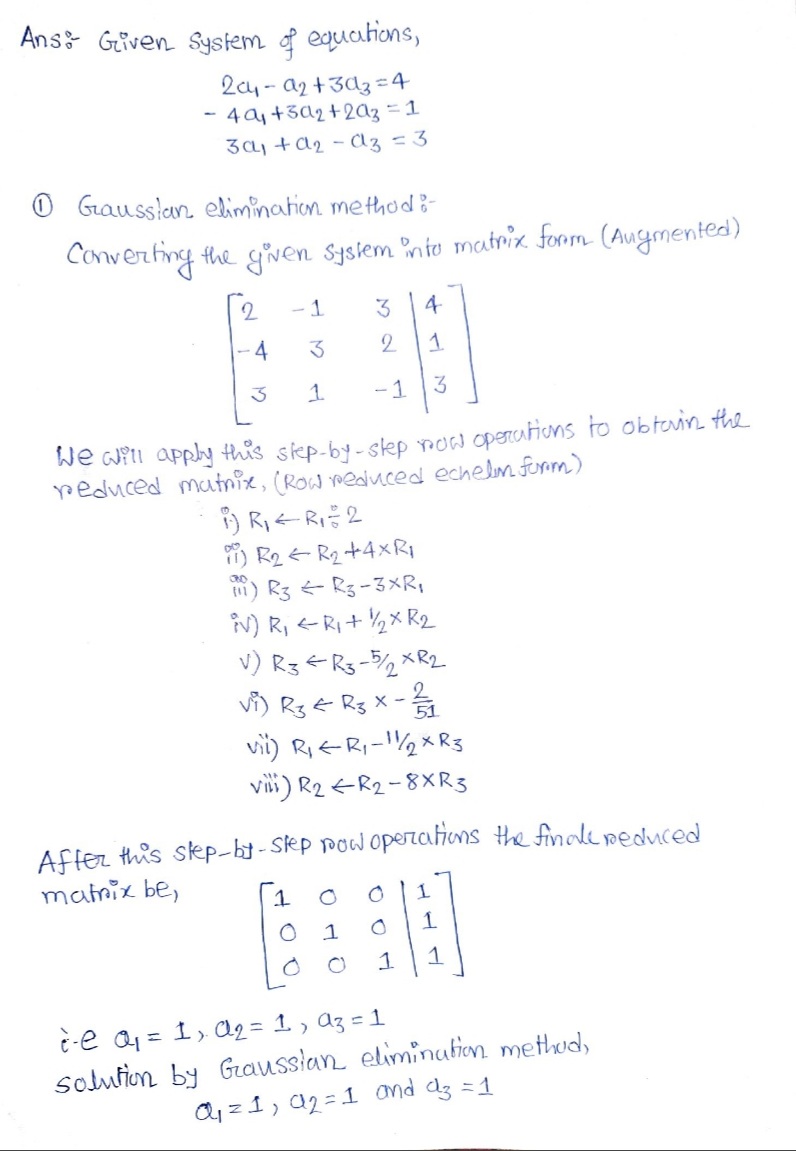 Ans:- Given system of equations,
2a₁ - a₂ + 3a₃ = 4
- 4a₁ + 3a₂ + 2a₃ = 1
3a₁ + a₂ - a₃ = 3
① Gaussian elimination method:-
Converting the given system into matrix form (Augmented)
[ 2 -1 3 | 4 ]
[ -4 3 2 | 1 ]
[ 3 1 -1 | 3 ]
We will apply this step-by-step row operations to obtain the
reduced matrix, (Row reduced echelon form)
i) R₁ ← R₁ ÷ 2
ii) R₂ ← R₂ + 4×R₁
iii) R₃ ← R₃ - 3×R₁
iv) R₁ ← R₁ + 1/2 × R₂
v) R₃ ← R₃ - 5/2 × R₂
vi) R₃ ← R₃ × - 2/51
vii) R₁ ← R₁ - 11/2 × R₃
viii) R₂ ← R₂ - 8×R₃
After this step-by-step row operations the finale reduced
matrix be,
[ 1 0 0 | 1 ]
[ 0 1 0 | 1 ]
[ 0 0 1 | 1 ]
i.e a₁ = 1, a₂ = 1, a₃ = 1
solution by Gaussian elimination method,
a₁ = 1, a₂ = 1 and a₃ = 1